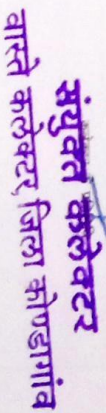 संयुक्त कलेक्टर
वास्ते कलेक्टर, जिला कोण्डागांव